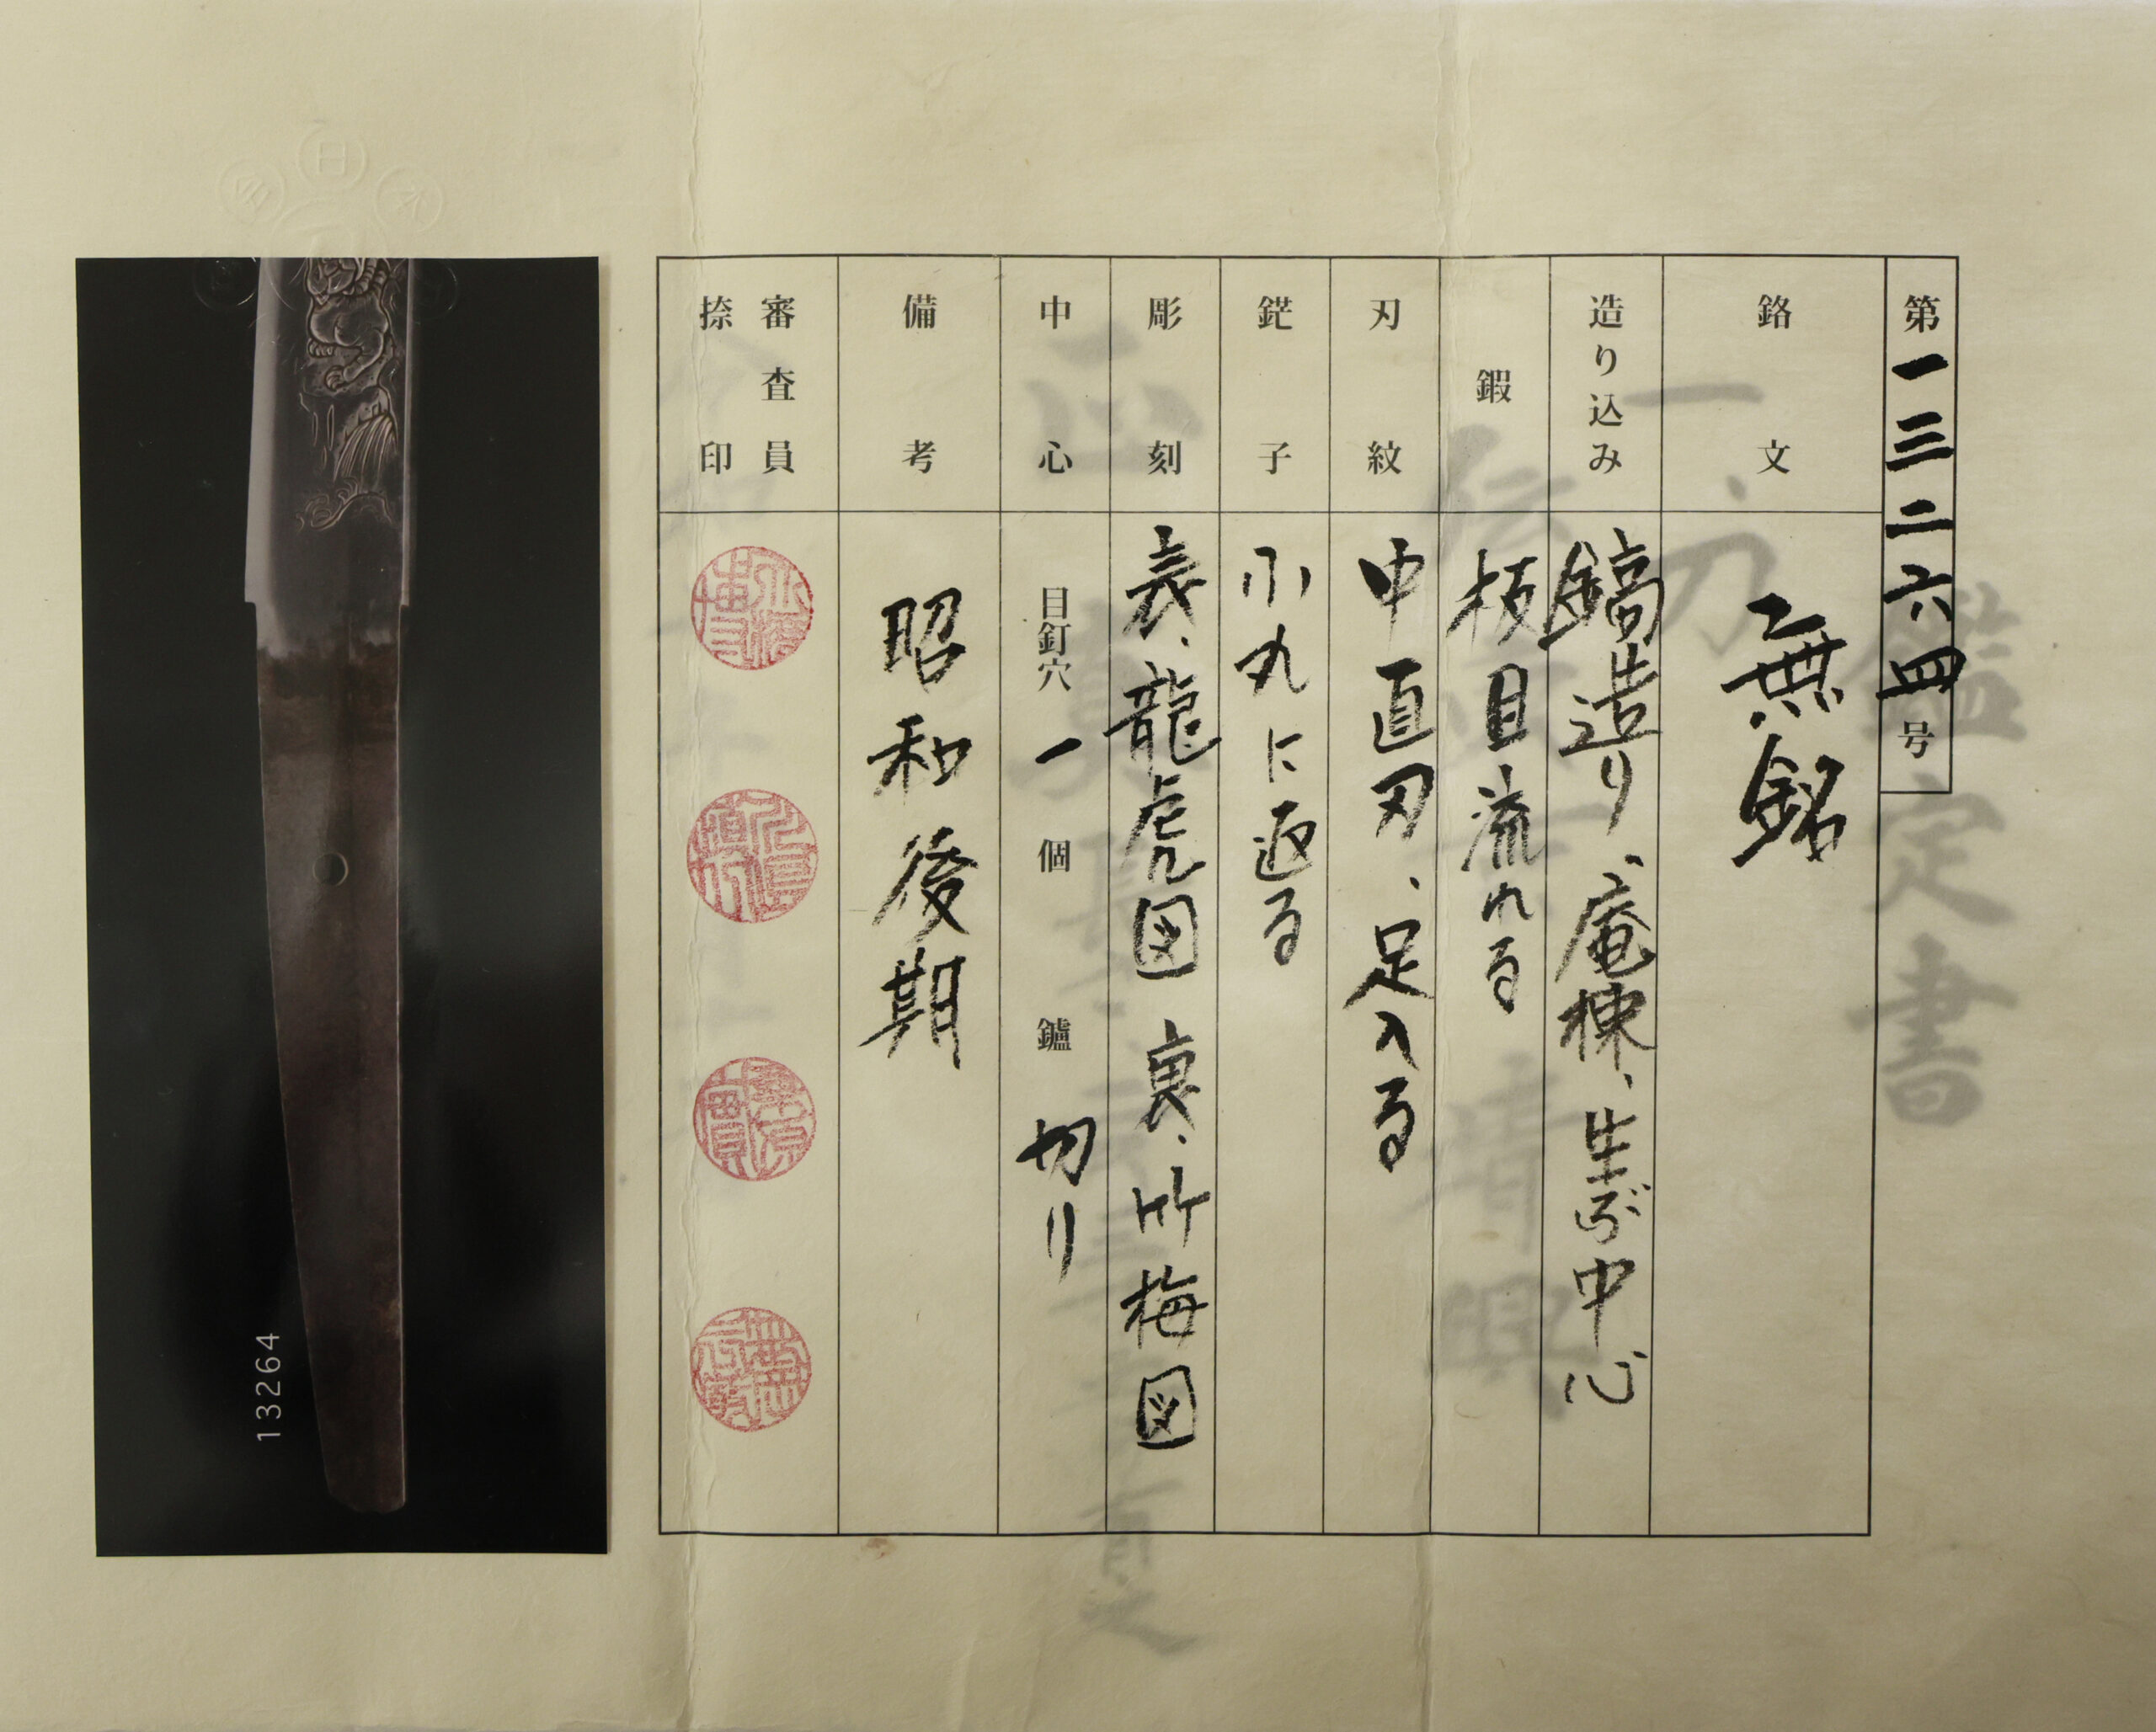 第一三二六四号
銘文
無銘
造り込み
鎬造り、庵棟、生ぶ中心
鍜
板目流れる
刃紋
中直刃、足入る
鋩子
小丸に返る
彫刻
表、龍虎図 裏、竹梅図
中心
目釘穴 一個 鑢 切り
備考
昭和後期
審査員
捺印
13264
鑑定書
一、刀